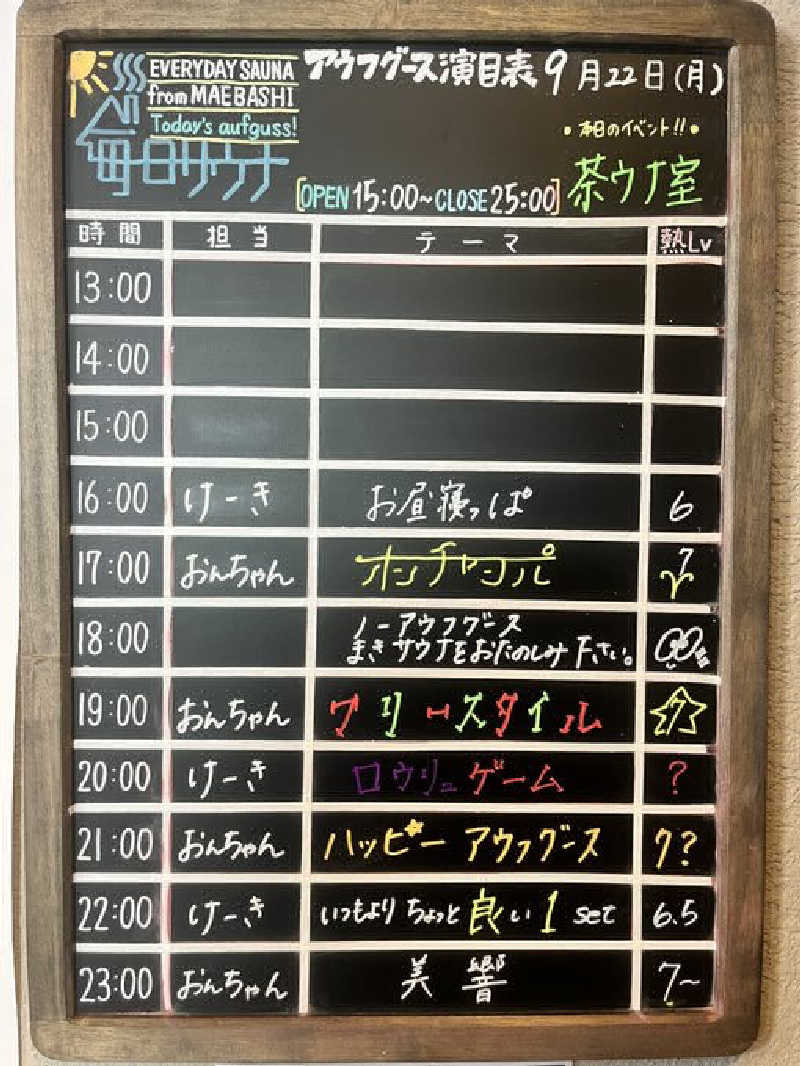 EVERYDAY SAUNA
from MAEBASHI
Today's aufguss!
毎日サウナ
アウフグース演目表 9月22日(月)
・本日のイベント!!・
茶ウナ室
[OPEN 15:00~CLOSE 25:00]
時間 担当 テーマ 熱Lv
13:00
14:00
15:00
16:00 けーき お昼寝っぱ 6
17:00 おんちゃん オンチャンプル 7
18:00 ノーアウフグース
まきサウナをおたのしみ下さい。
19:00 おんちゃん フリースタイル 7
20:00 けーき ロウリュゲーム ?
21:00 おんちゃん ハッピー アウフグース 7?
22:00 けーき いつもより ちょっと 良い 1 set 6.5
23:00 おんちゃん 美響 7~